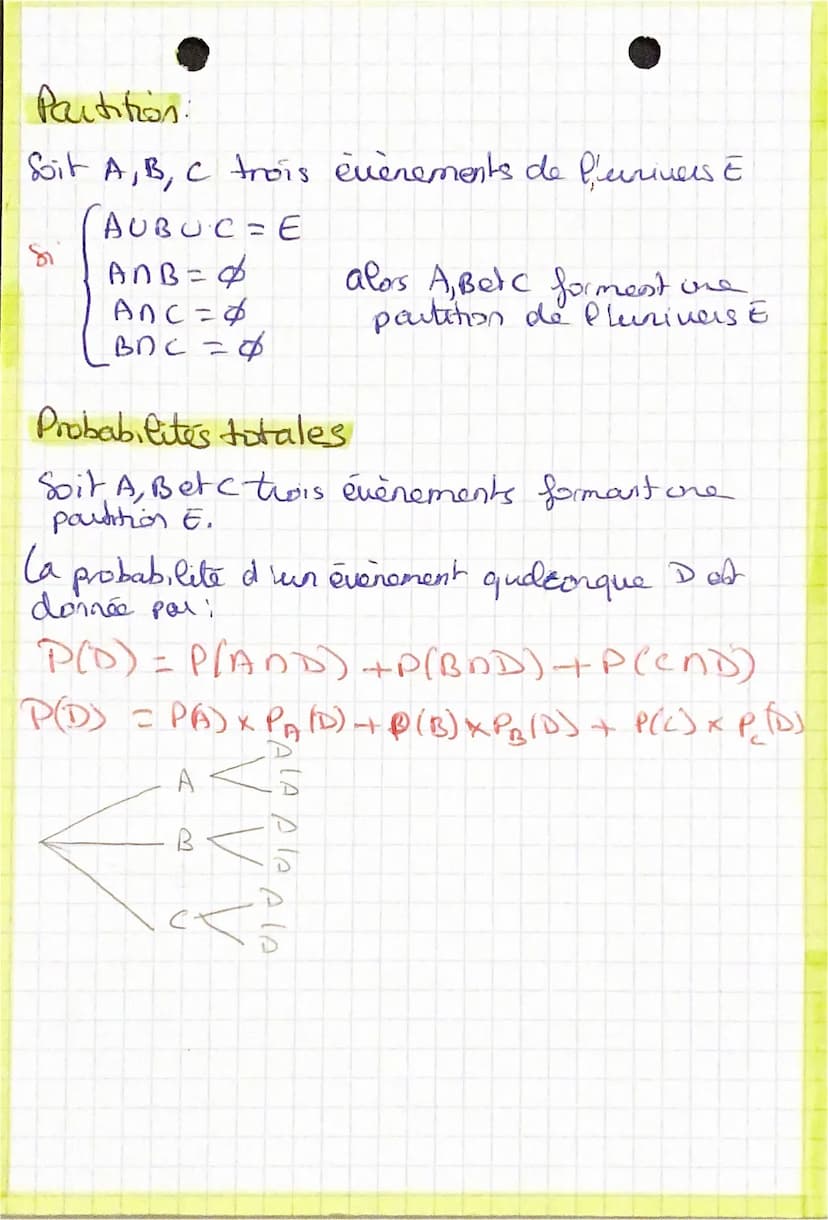 Partition:
Soit A, B, C trois évènements de l'univers E
A∪B∪C = E
Si
A∩B = ∅
alors A, B et C forment une
A∩C = ∅
partition de l'univers E
B∩C = ∅
Probabilités totales
Soit A, B et C trois évènements formant une
partition E.
La probabilité d'un évènement quelconque D est
donnée par:
P(D) = P(A∩D) + P(B∩D) + P(C∩D)
P(D) = P(A) × P_A(D) + P(B) × P_B(D) + P(C) × P_C(D)
D
A
D̅
D
B
D̅
D
C
D̅